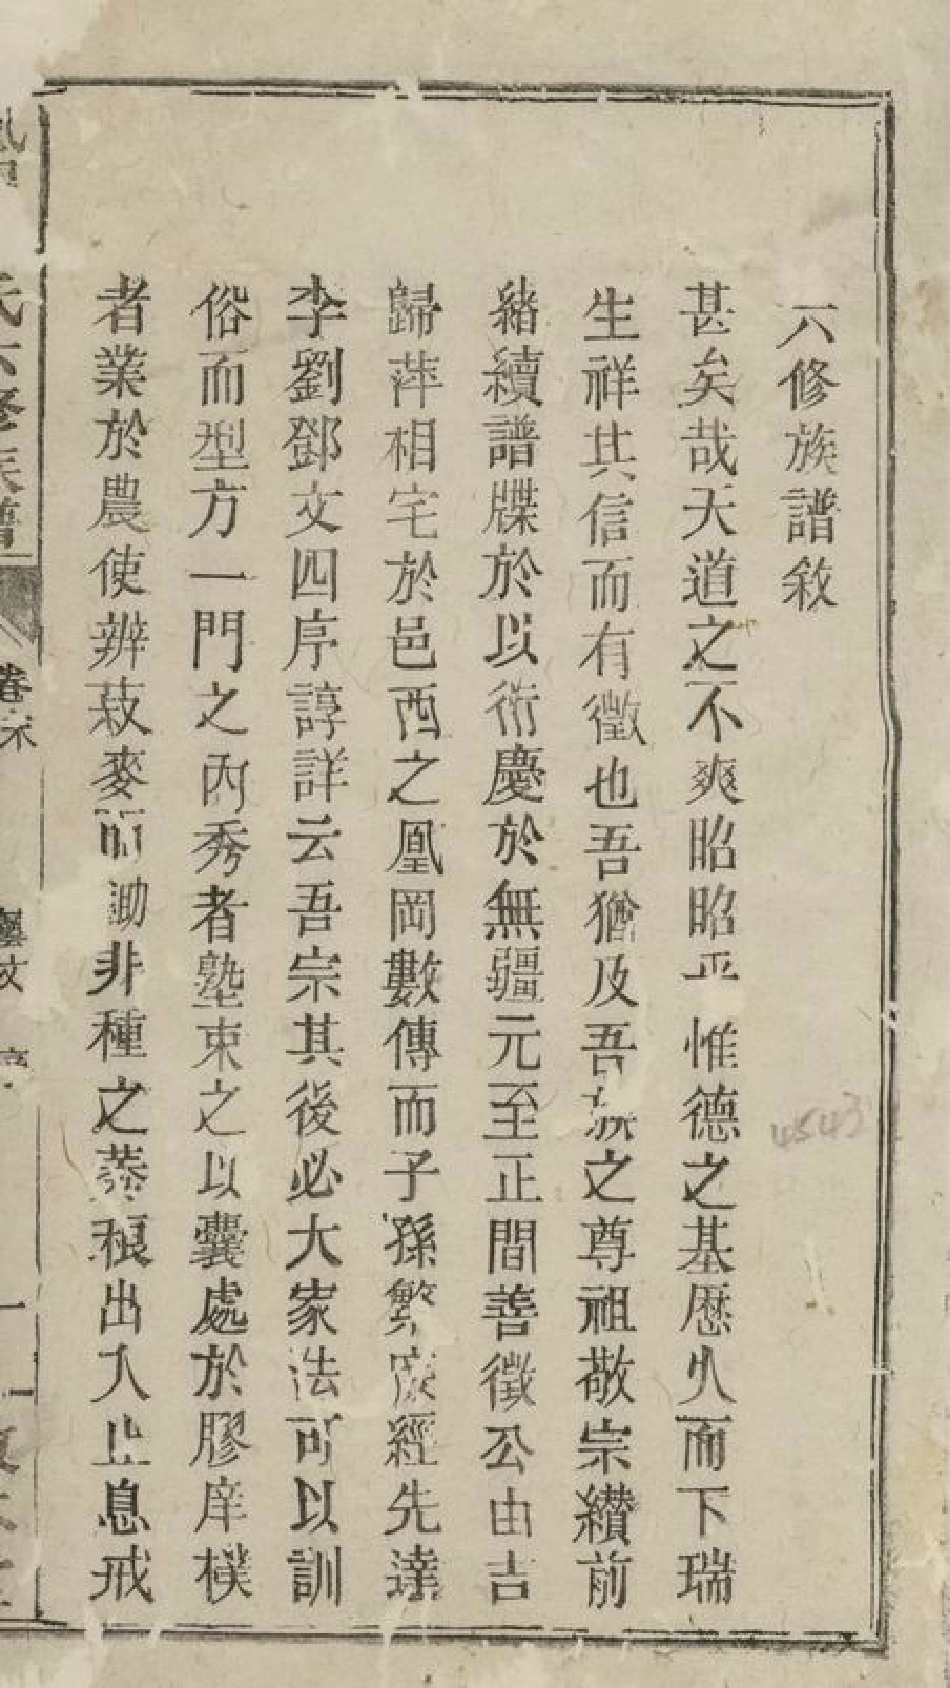 六修族譜敘
甚矣哉天道之不爽昭昭乎惟德之基歷久而下瑞
生祥其信而有徵也吾猶及吾族之尊祖敬宗纘前
緒續譜牒於以衍慶於無疆元至正間善徵公由吉
歸萍相宅於邑西之凰岡數傳而子孫繁庶經先達
李劉鄧文四序諄詳云吾宗其後必大家法可以訓
俗而型方一門之內秀者塾束之以囊處於膠庠樸
者業於農使辨菽麥而鋤非種之莠稂出入止息戒
氏六修族譜
卷末
藝文